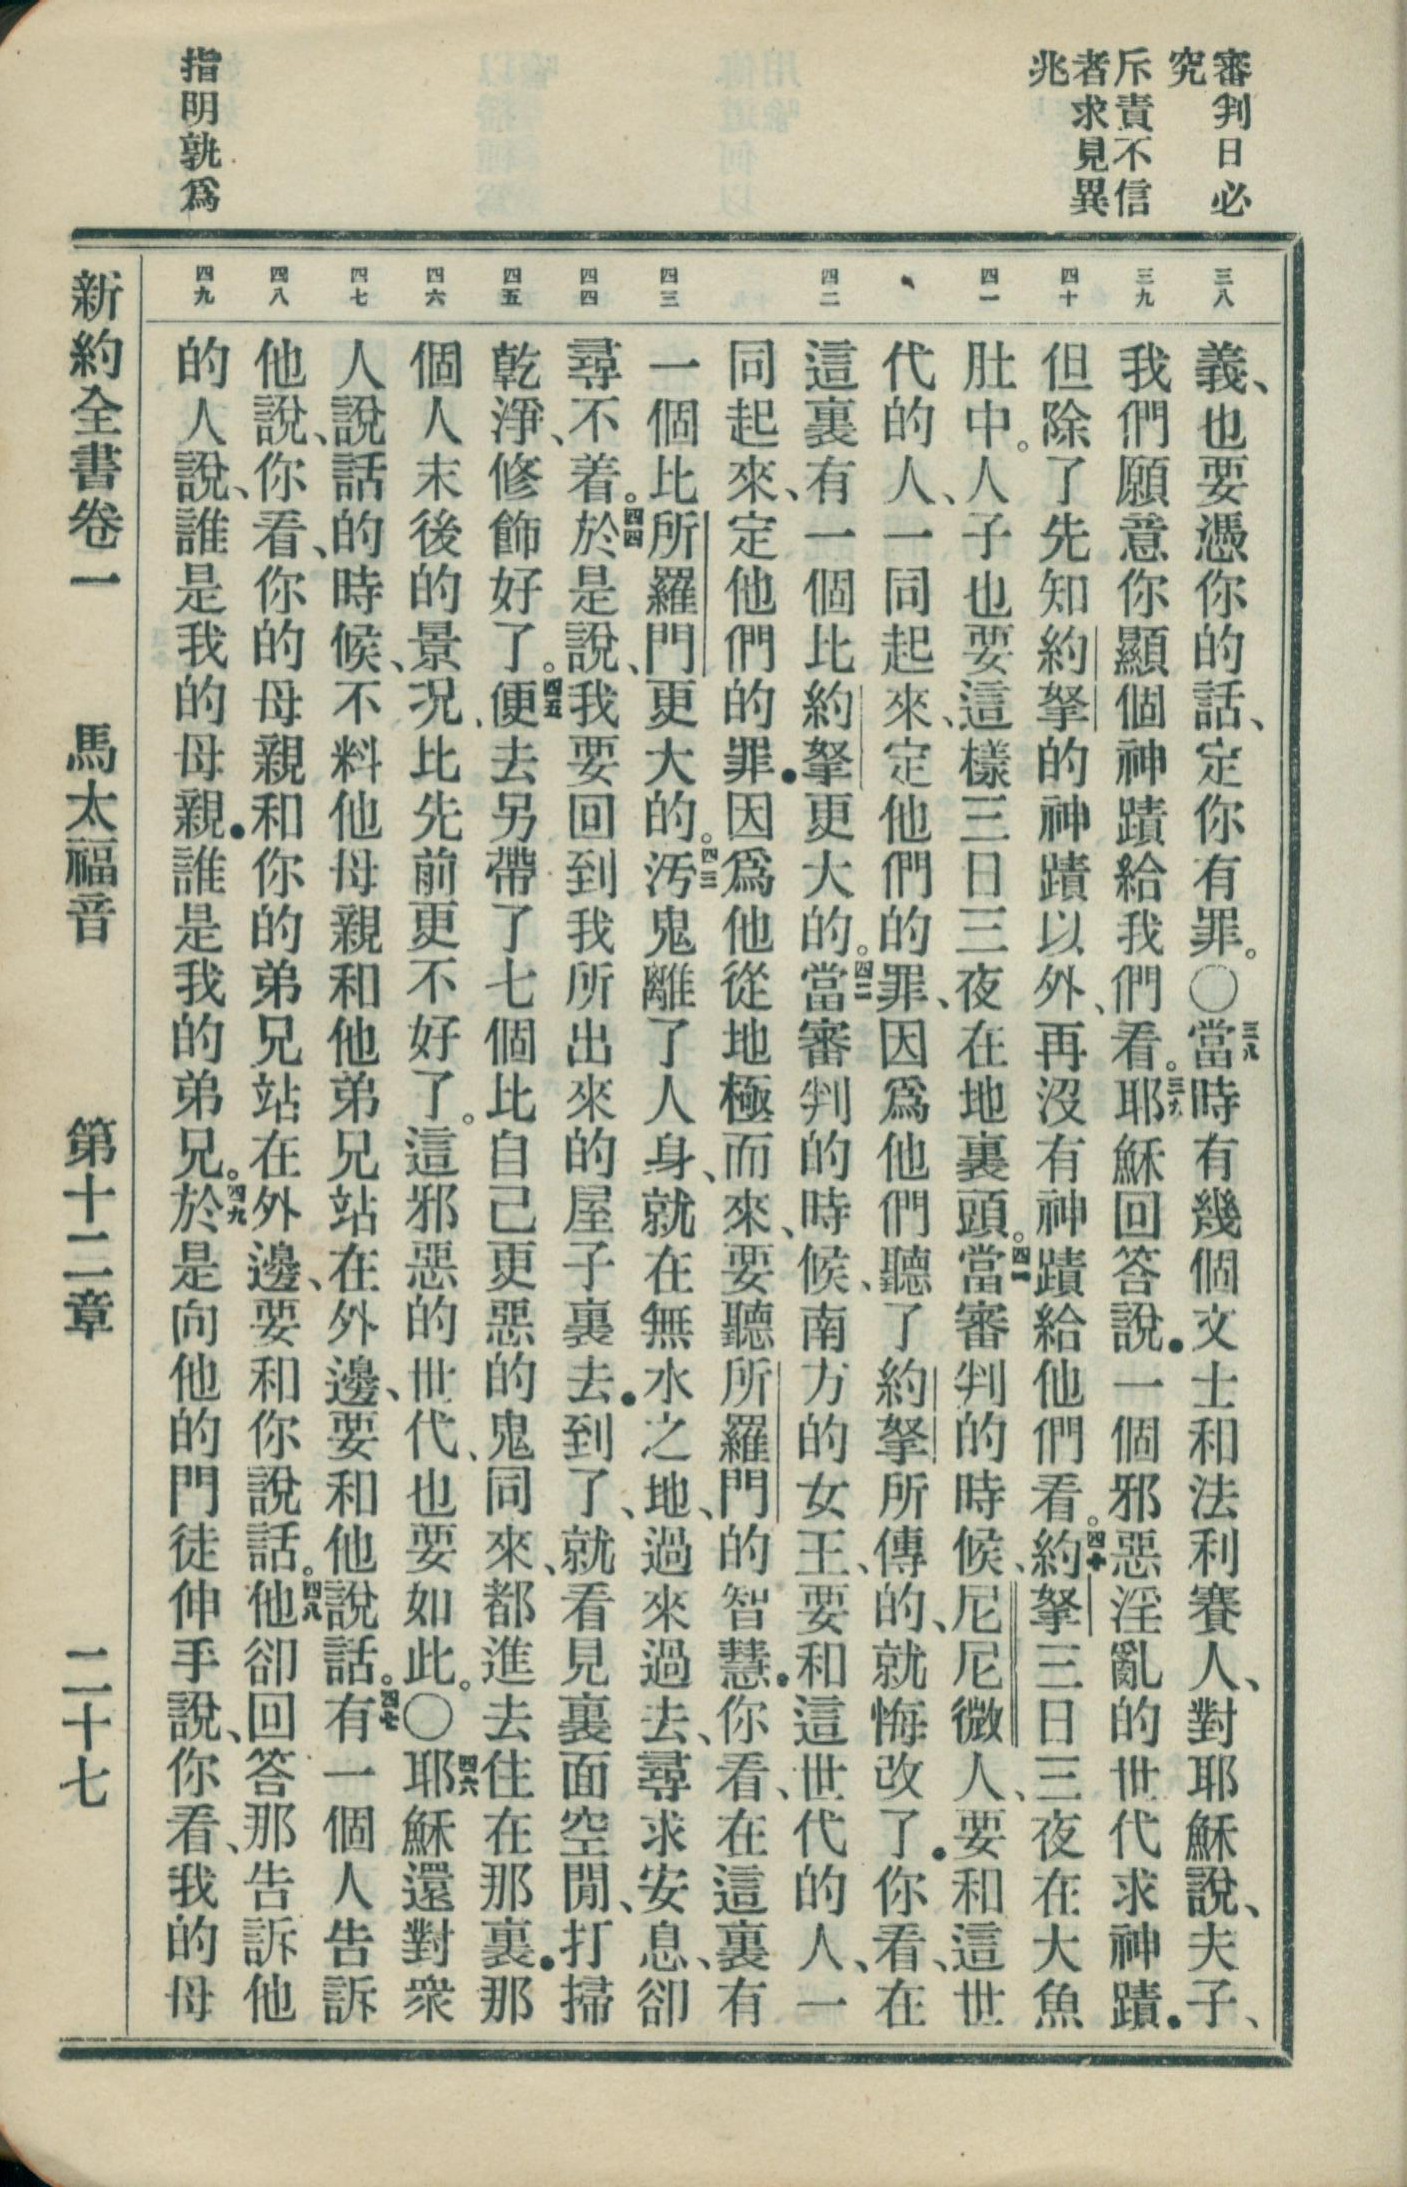 審判日必
究
斥責不信
者求見異
兆
指明孰爲
三八
三九
四十
四一
四二
四三
四四
四五
四六
四七
四八
四九
義、也要憑你的話、定你有罪。○三八當時有幾個文士和法利賽人、對耶穌說、夫子、
我們願意你顯個神蹟給我們看。三九耶穌回答說．一個邪惡淫亂的世代求神蹟．
但除了先知約拏的神蹟以外、再沒有神蹟給他們看。四十約拏三日三夜在大魚
肚中。人子也要這樣三日三夜在地裏頭。四一當審判的時候、尼尼微人、要和這世
代的人、一同起來、定他們的罪、因爲他們聽了約拏所傳的、就悔改了．你看、在
這裏有一個比約拏更大的。四二當審判的時候、南方的女王、要和這世代的人、一
同起來、定他們的罪．因爲他從地極而來、要聽所羅門的智慧．你看、在這裏有
一個比所羅門更大的。四三汚鬼離了人身、就在無水之地、過來過去、尋求安息、卻
尋不着。四四於是說、我要回到我所出來的屋子裏去．到了、就看見裏面空閒、打掃
乾淨、修飾好了。四五便去另帶了七個比自己更惡的鬼同來、都進去住在那裏．那
個人末後的景况、比先前更不好了。這邪惡的世代、也要如此。○四六耶穌還對衆
人說話的時候、不料他母親和他弟兄站在外邊、要和他說話。四七有一個人告訴
他說、你看、你的母親和你的弟兄站在外邊、要和你說話。四八他卻回答那告訴他
的人說、誰是我的母親．誰是我的弟兄。四九於是向他的門徒伸手說、你看、我的母
新約全書卷一　馬太福音　第十二章　二十七